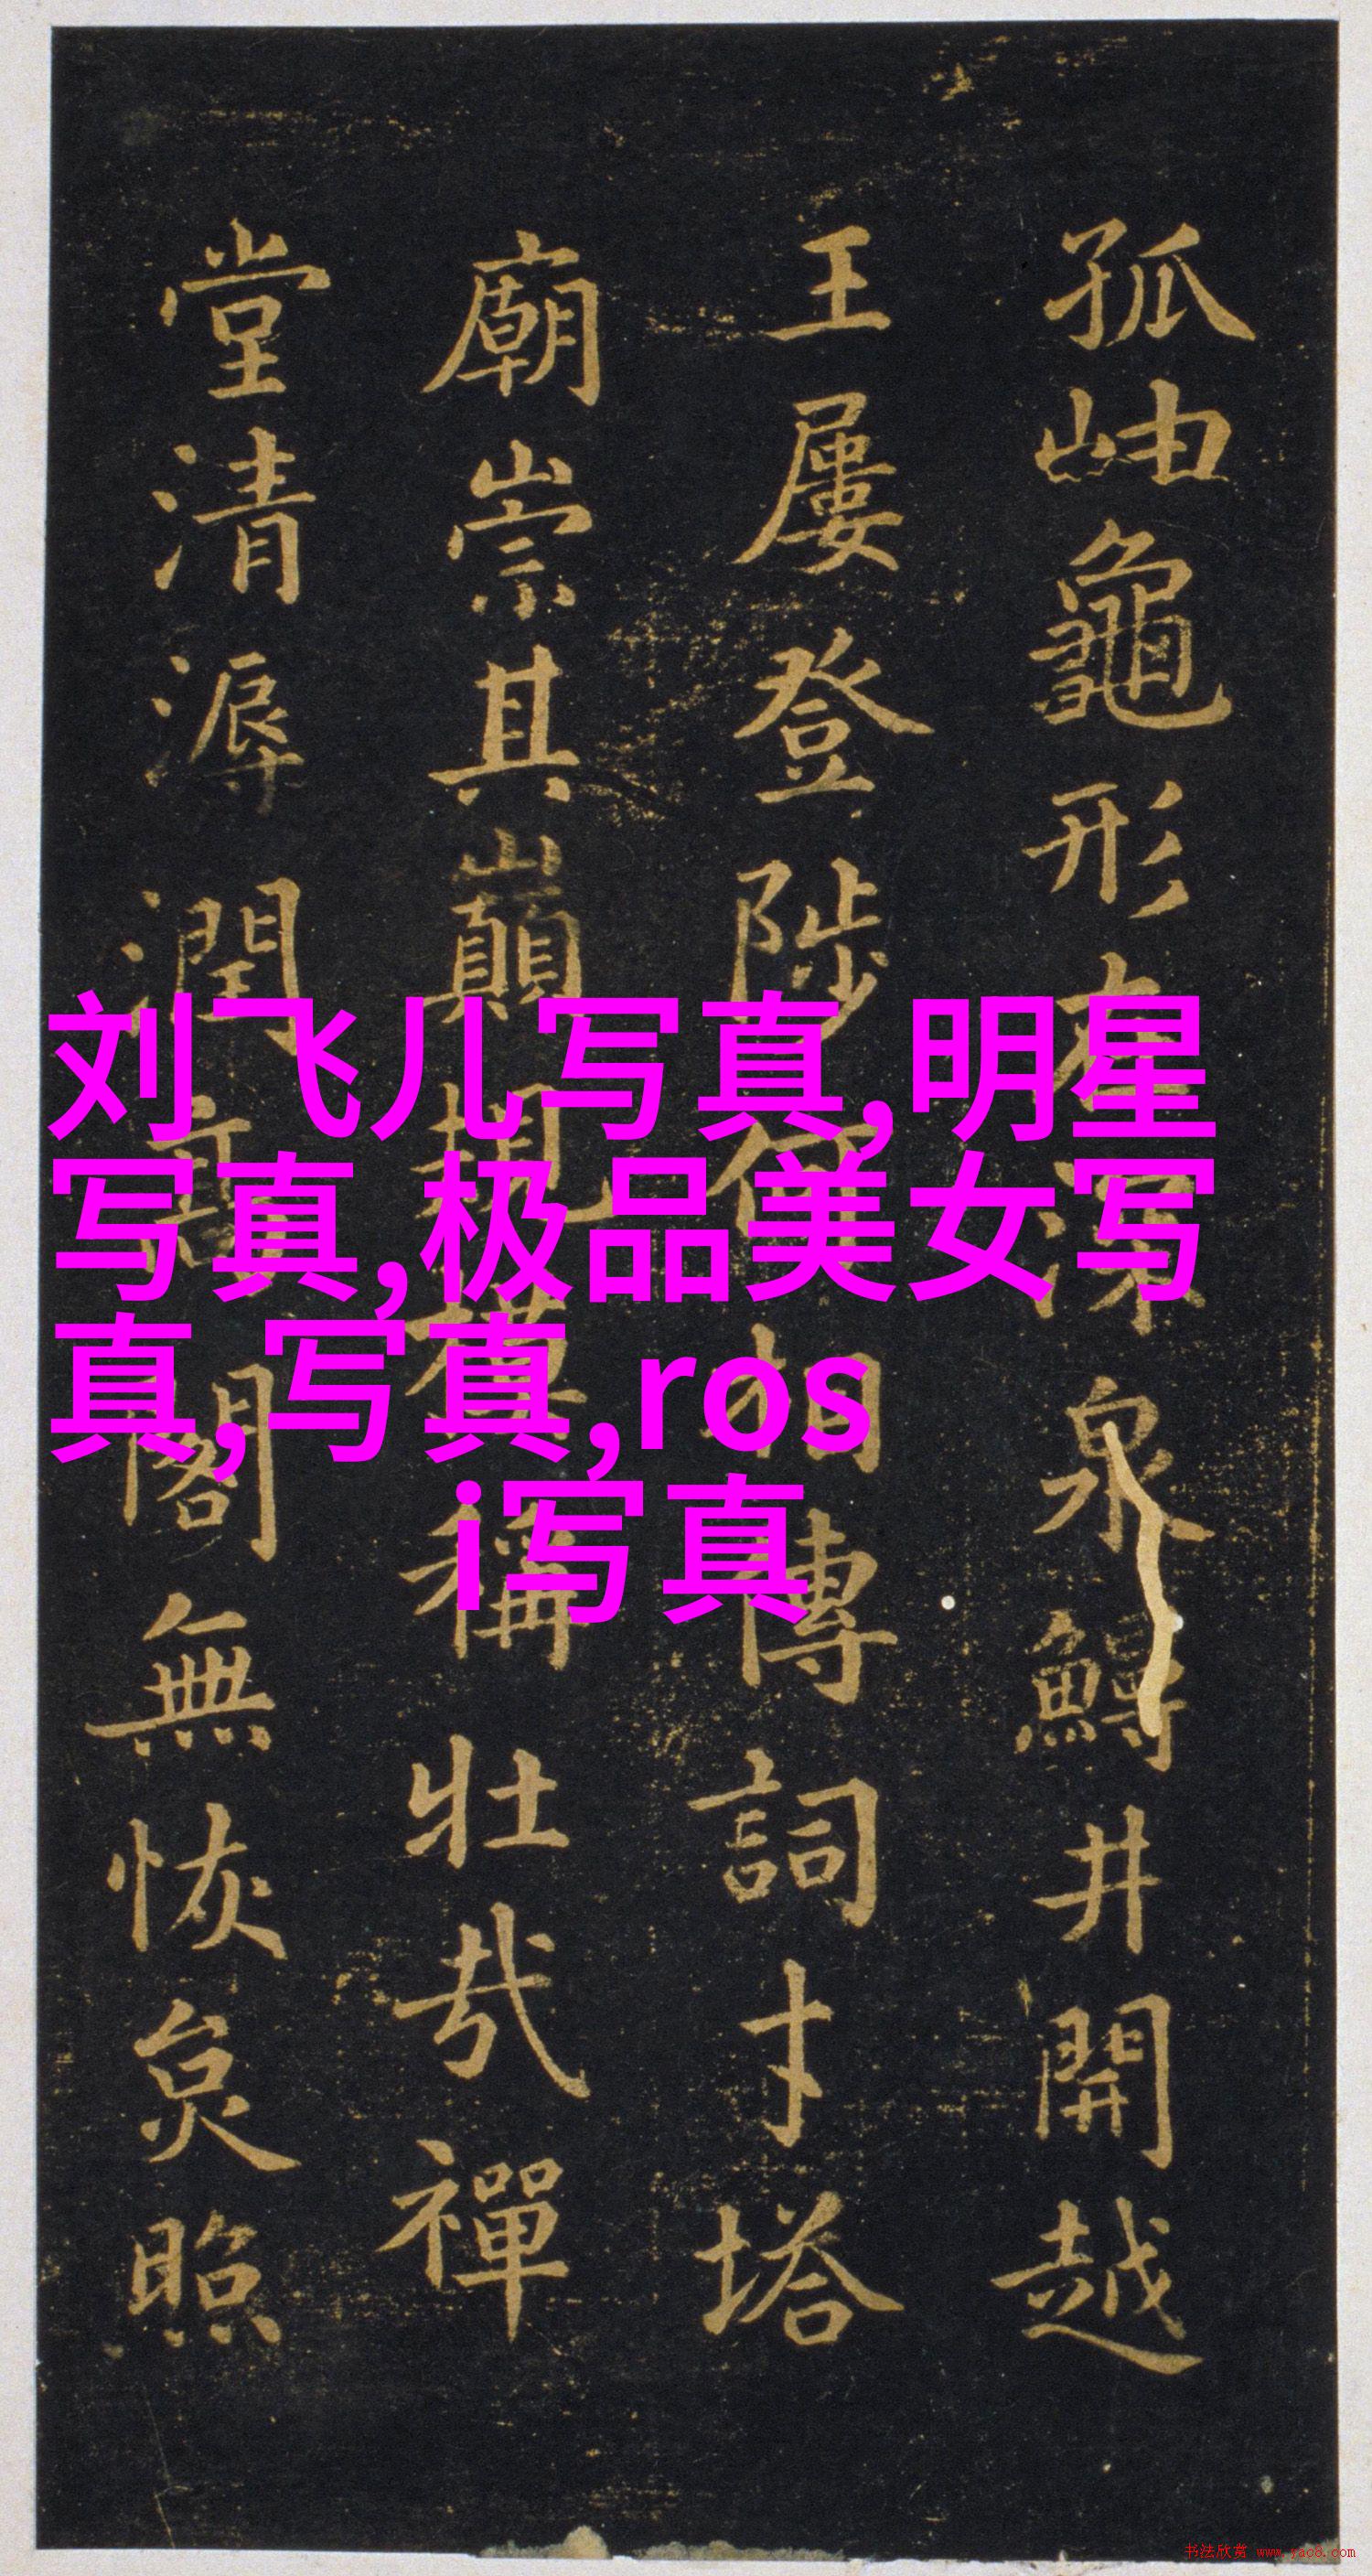 孤岫龜形在深泉鰻井開越
王屢登陟何相傳詞才塔
廟崇其巔規模稱壯哉禪
堂清溽潤高閣無恢炱照
刘飞儿写真,明星
写真,极品美女写
真,写真,ros
i写真
书法欣赏 www.yac8.com